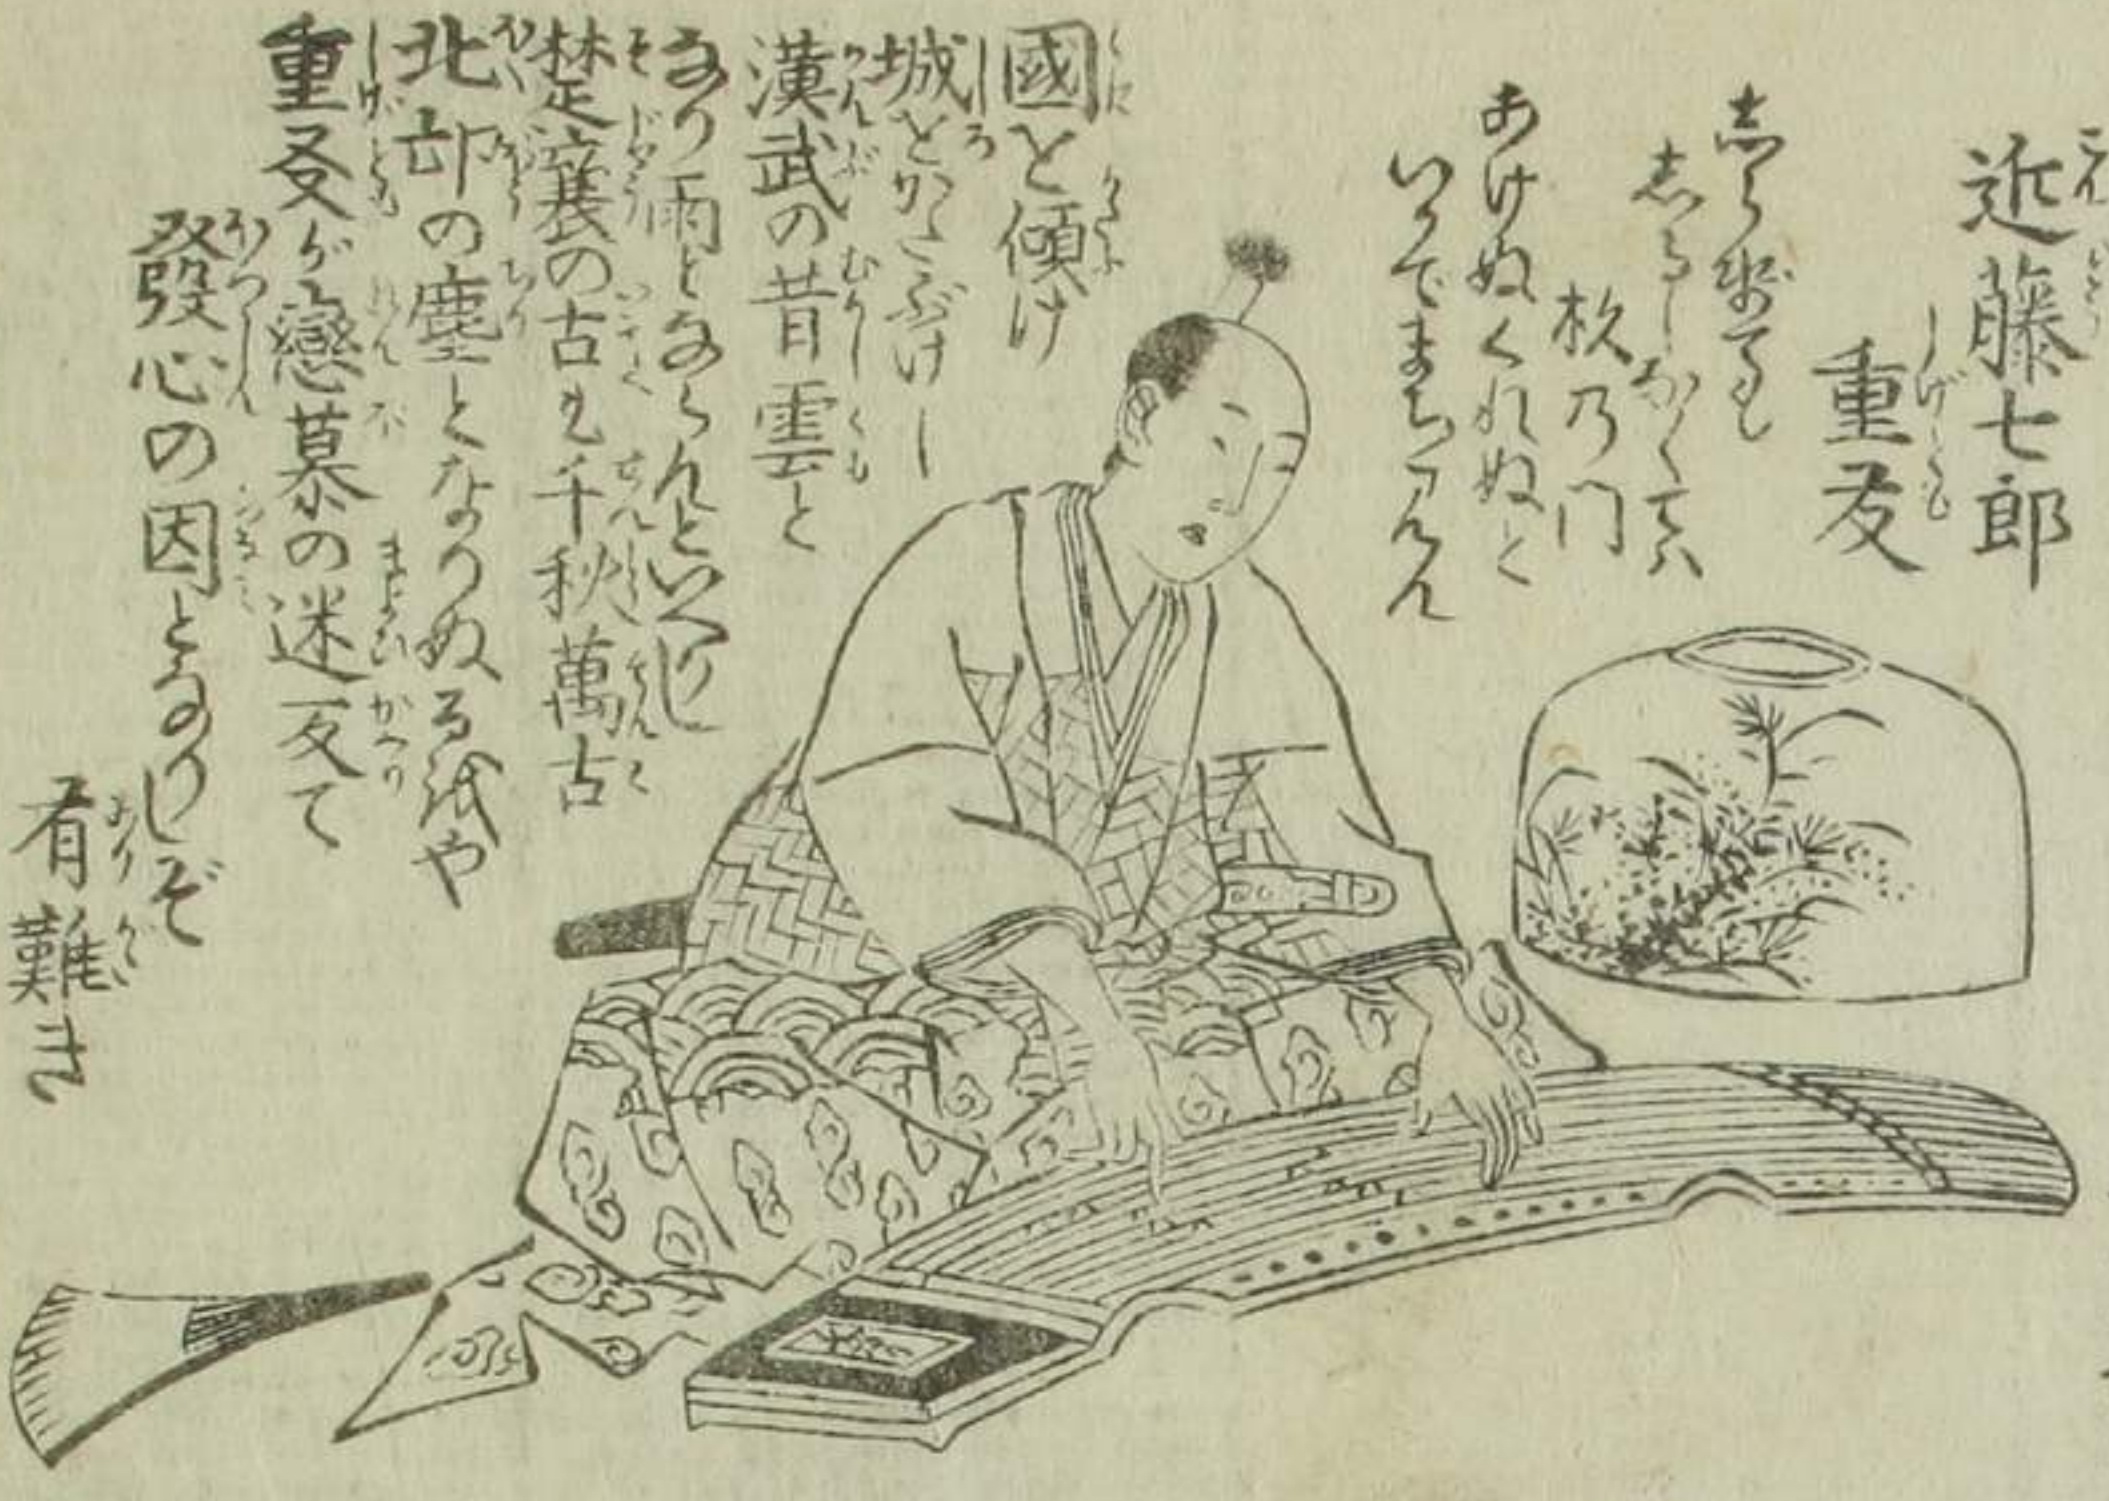 近藤七郎
重友
志らせても
志るしなくてハ
杦乃門
あけぬくれぬと
いかでまちけん
國を傾け
城をかたぶけし
漢武の昔雲と
なり雨とならんといへりし
楚襄の古も千秋萬古
北邙の塵となりぬる哉や
重友が戀慕の迷反て
發心の因となりしぞ
有難き